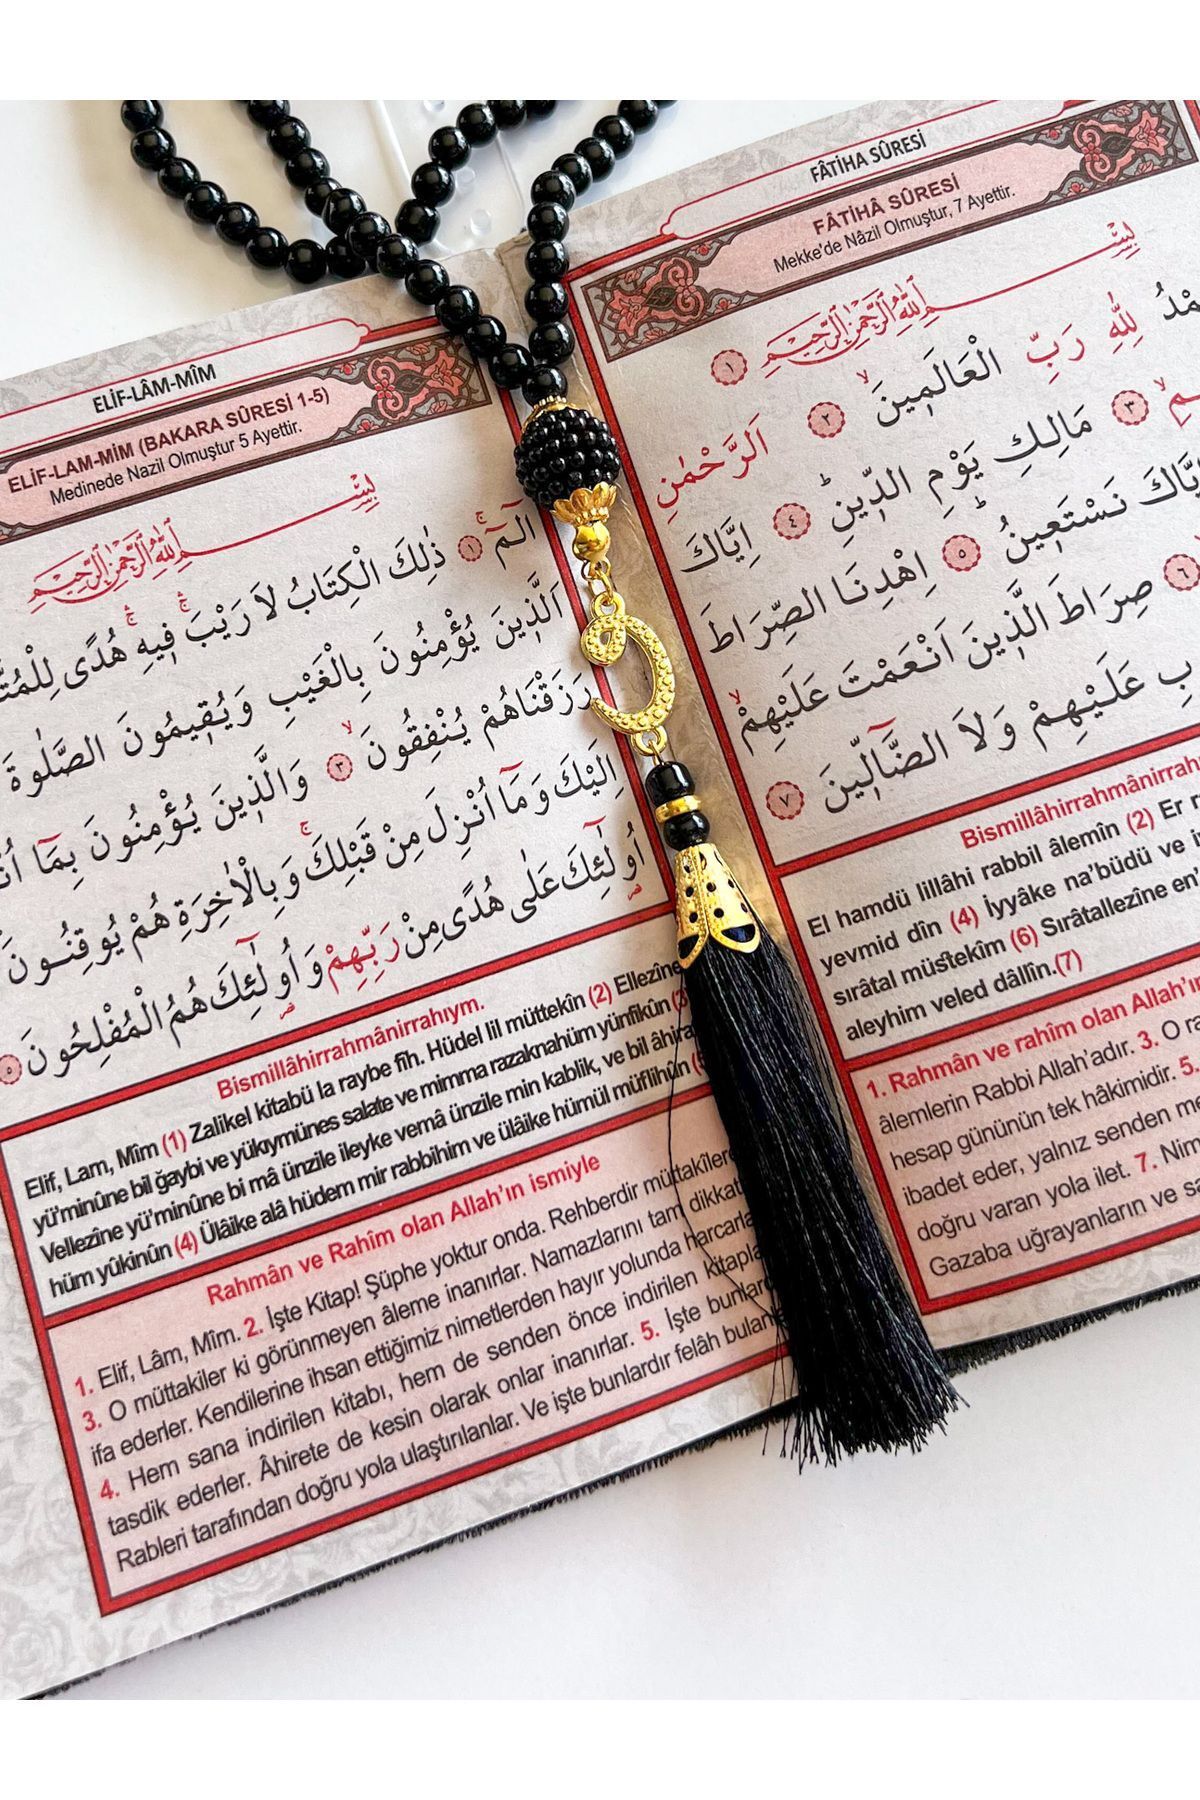 FÂTİHA SÛRESİ
FÂTİHÂ SÛRESİ
Mekke'de Nâzil Olmuştur, 7 Ayettir.
بِسْمِ اللّٰهِ الرَّحْمٰنِ الرَّحِيمِ ١
لِلّٰهِ رَبِّ الْعَالَمِينَۙ ٢ اَلرَّحْمٰنِ
٣ مَالِكِ يَوْمِ الدِّينِۜ ٤ اِيَّاكَ
نَسْتَعِينُۜ ٥ اِهْدِنَا الصِّرَاطَ
٦ صِرَاطَ الَّذِينَ اَنْعَمْتَ عَلَيْهِمْۙ
عَلَيْهِمْ وَلَا الضَّٓالِّينَ ٧
Bismillâhirrahmânirrah
El hamdü lillâhi rabbil âlemîn (2) Er r
yevmid dîn (4) İyyâke na'büdü ve i
sırâtal müstekîm (6) Sırâtallezîne en'
aleyhim veled dâllîn.(7)
1. Rahmân ve rahîm olan Allah'ın
âlemlerin Rabbi Allah'adır. 3. O ra
hesap gününün tek hâkimidir. 5.
ibadet eder, yalnız senden me
doğru varan yola ilet. 7. Nim
Gazaba uğrayanların ve sa
ELİF-LÂM-MÎM
ELİF-LAM-MÎM (BAKARA SÛRESİ 1-5)
Medinede Nazil Olmuştur 5 Ayettir.
بِسْمِ اللّٰهِ الرَّحْمٰنِ الرَّحِيمِ
الٓمٓۚ ١ ذٰلِكَ الْكِتَابُ لَا رَيْبَۚ فِيهِۚ هُدًى لِلْمُتَّ
اَلَّذِينَ يُؤْمِنُونَ بِالْغَيْبِ وَيُقِيمُونَ الصَّلٰوةَ
رَزَقْنَاهُمْ يُنْفِقُونَۙ ٣ وَالَّذِينَ يُؤْمِنُونَ بِمَٓا اُنْ
اِلَيْكَ وَمَٓا اُنْزِلَ مِنْ قَبْلِكَۚ وَبِالْاٰخِرَةِ هُمْ يُوقِنُونَ
اُو۬لٰٓئِكَ عَلٰى هُدًى مِنْ رَبِّهِمْ وَاُو۬لٰٓئِكَ هُمُ الْمُفْلِحُونَ ٥
Bismillâhirrahmânirrahıym.
Elif, Lam, Mîm (1) Zalikel kitabü la raybe fîh. Hüdel lil müttekîn (2) Ellezîne
yü'minûne bil ğaybi ve yükıymünes salate ve mimma razaknahüm yünfikûn (3
Vellezîne yü'minûne bi mâ ünzile ileyke vemâ ünzile min kablik, ve bil âhira
hüm yûkinûn (4) Ülâike alâ hüdem mir rabbihim ve ülâike hümül müflihûn (5
Rahmân ve Rahîm olan Allah'ın ismiyle
1. Elif, Lâm, Mîm. 2. İşte Kitap! Şüphe yoktur onda. Rehberdir müttakîler
3. O müttakiler ki görünmeyen âleme inanırlar. Namazlarını tam dikkat
ifa ederler. Kendilerine ihsan ettiğimiz nimetlerden hayır yolunda harcarla
4. Hem sana indirilen kitabı, hem de senden önce indirilen kitapla
tasdik ederler. Âhirete de kesin olarak onlar inanırlar. 5. İşte bunlard
Rableri tarafından doğru yola ulaştırılanlar. Ve işte bunlardır felâh bulan